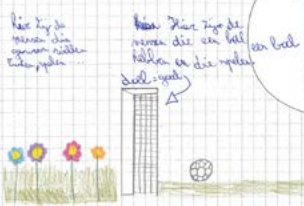 hier zijn de
mensen die
gewoon willen
spelen ...
Hier zijn de
mensen die een bal
hebben en die spelen
een bal
doel = goal